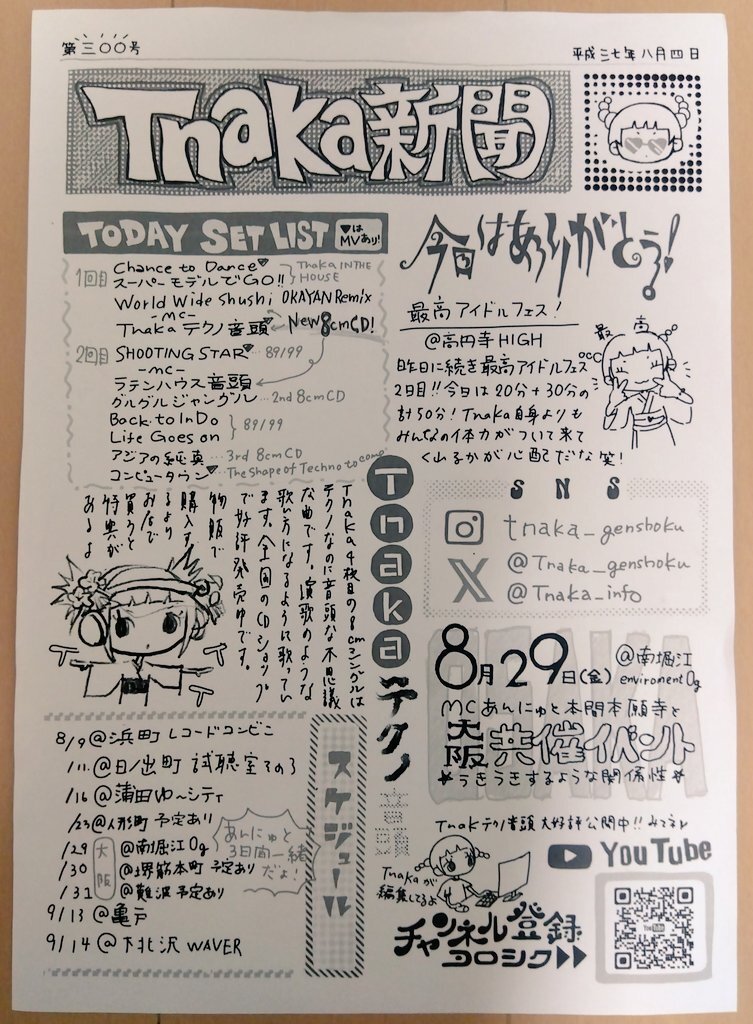 第三〇〇号
平成三七年八月四日
Tnaka新聞
TODAY SET LIST ♥はMVあり!
1回目 Chance to Dance♥
スーパーモデルでGO!!
Tnaka IN THE HOUSE
World Wide Shushi OKAYAN Remix
-MC-
Tnaka テクノ音頭 ← New 8cmCD!
2回目 SHOOTING STAR♥ … 89/99
-MC-
ラテンハウス音頭
グルグルジャングル … 2nd 8cmCD
Back to In Do
Life Goes on
89/99
アジアの純真 … 3rd 8cmCD
コンピュータウン♥ … The Shape of Techno to come
今日はありがとう!
最高アイドルフェス!
@高円寺HIGH
昨日に続き最高アイドルフェス
2日目!!今日は20分+30分の
計50分!Tnaka自身よりも
みんなの体力がついて来て
くれるかが心配だな笑!
最高
SNS
tnaka_genshoku
@Tnaka_genshoku
@Tnaka_info
Tnaka4枚目の8cmシングルは
テクノなのに音頭な不思議
な曲です。演歌のような
歌い方になるように歌ってい
ます。全国のCDショップ
で好評発売中です。
物販で
購入す
るより
おみせで
買うと
特典が
あるよ
Tnakaテクノ音頭
8月29日(金) @南堀江
enviroment 0g
MCあんにゅと本間本願寺と
大阪共催イベント
★うきうきするような関係性★
OSAKA
スケジュール
8/9 @浜町 レコードコンビニ
/11 @日ノ出町 試聴室その3
/16 @蒲田ゆ〜シティ
/23 @人形町 予定あり
/29 @南堀江0g
/30 @堺筋本町 予定あり
/31 @難波 予定あり
大阪
あんにゅと
3日間一緒
だよ!
9/13 @亀戸
9/14 @下北沢 WAVER
Tnakテクノ音頭 大好評公開中!! みてネ
YouTube
Tnakaが
編集してるよ
チャンネル登録
ヨロシク▶▶
YouTube